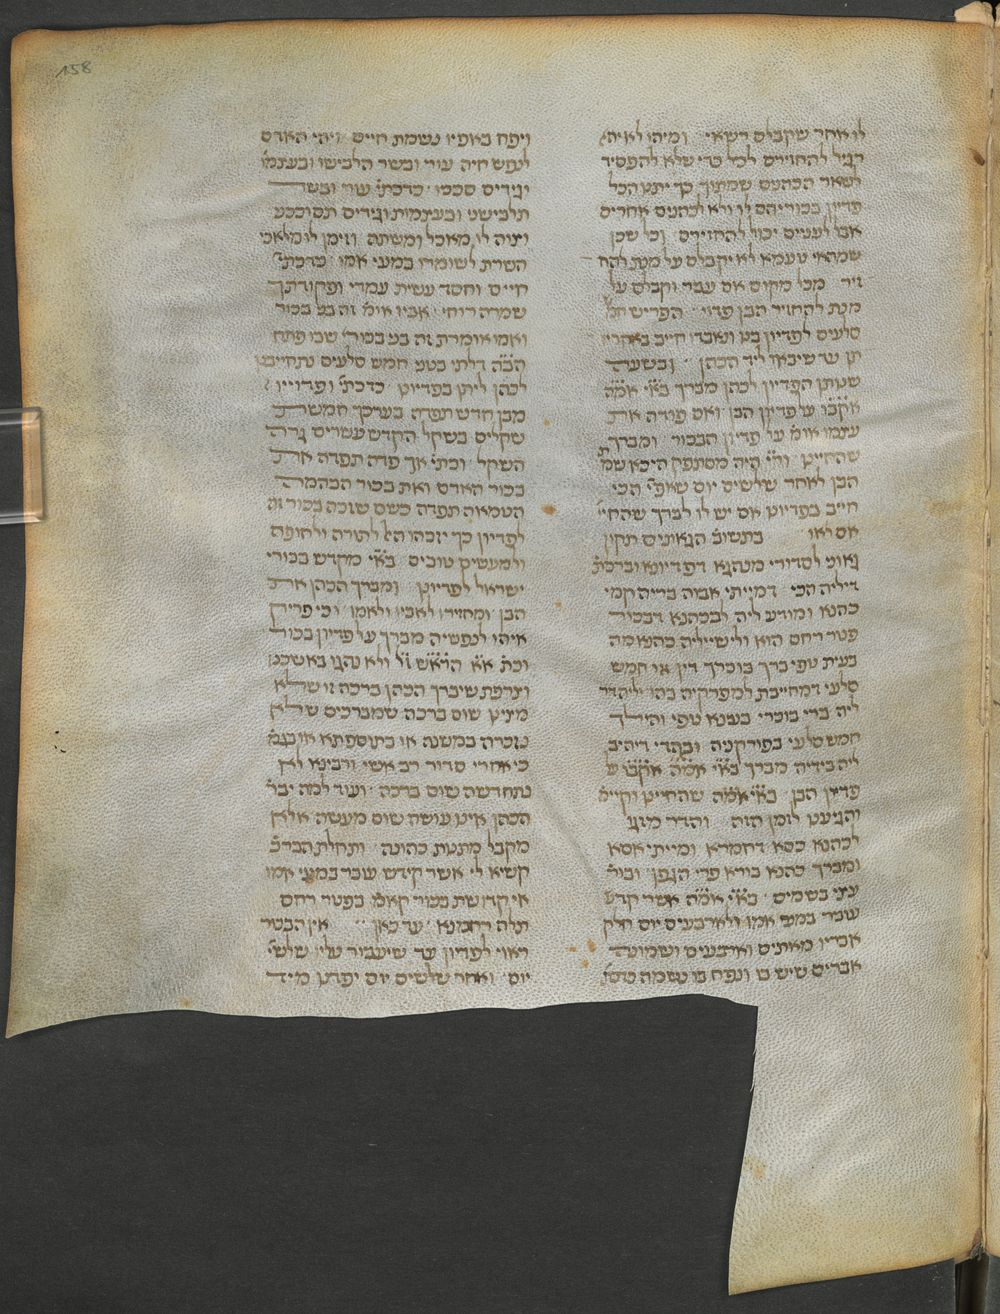 158
לו אחר שקבלם רשאי ומיהו לא יהא
רגיל להחזירם לכל כדי שלא להפסיד
לשאר הכהנים שמתוך כך יתנו הכל
פדיון בכוריהם לו ולא לכהנים אחרים
אבל לעניים יכול להחזירם וכל שכן
שמהאי טעמא לא יקבלם על מנת להח
זיר מכל מקום אם עבר וקבלם על
מנת להחזיר הבן פדוי הפריש חמ
סלעים לפדיון בנו ונאבדו חייב באחריו
תן עד שיבאו ליד הכהן ובשעה
שנותן הפדיון לכהן מברך בא"י אמ"ה
אקב"ו על פדיון הבן ואם פודה את
עצמו אומ' על פדיון הבכור ומברך
שהחיינו ור' היה מסתפק היכא שמ'
הבן לאחר שלשים יום שאפי' הכי
חייב בפדיונו אם יש לו לברך שהחיי'
אם לאו בתשוב' הגאונים תקין
גאוני לסדורי מנהגא דפדיונא וברכת
דיליה הכי דמייתי אבוה בריה קמי
כהנא ומודע ליה לכהנא דבכור
פטר רחם הוא ולישייליה כהנא מה
בעית טפי ברך בוכרך דין או חמש
סלעי דמחייבת למפרקיה בהו וליהדר
ליה ברי בוכרי בעינא טפי והילך
חמש סלעי בפורקניה ובהדי דיהיב
ליה בידיה מברך בא"י אמ"ה אקב"ו על
פדיון הבן בא"י אמ"ה שהחיינו וקיימ'
והגיענו לזמן הזה והדר מזגי
לכהנא כסא דחמרא ומייתי אסא
ומברך כהנא בורא פרי הגפן ובור'
עצי בשמים בא"י אמ"ה אשר קדש
עובר במעי אמו ולארבעים יום חלק
אבריו מאתים וארבעים ושמונה
אברים שיש בו ונפח בו נשמה כדכתי'
ויפח באפיו נשמת חיים ויהי האדם
לנפש חיה עור ובשר הלבישו ובעצמו'
וגידים סככו כדכתי' עור ובשר
תלבישני ובעצמות וגידים תסוככני
וצוה לו מאכל ומשתה וזימן לו מלאכי
השרת לשומרו במעי אמו כדכתי'
חיים וחסד עשית עמדי ופקודתך
שמרה רוחי אביו אומ' זה בני בכור
ואמו אומרת זה בני בכורי שבו פתח
הב"ה דלתי בטני חמש סלעים נתחייבנו
לכהן ליתן בפדיונו כדכתי' ופדוייו
מבן חדש תפדה בערכך חמשת
שקלים בשקל הקדש עשרים גרה
השקל וכתי' אך פדה תפדה את
בכור האדם ואת בכור הבהמה
הטמאה תפדה כשם שזכה בכור זה
לפדיון כך יזכהו הא' לתורה ולחופה
ולמעשים טובים בא"י מקדש בכורי
ישראל לפדיונן ומברך הכהן את
הבן ומחזירו לאביו ולאמו וכי פריק
איהו לנפשיה מברך על פדיון בכור
וכת' א"א הרא"ש ז"ל ולא נהגו באשכנז
וצרפת שיברך הכהן ברכה זו שלא
מצינו שום ברכה שמברכים שלא
נזכרה במשנה או בתוספתא או בגמ'
כי אחרי סדור רב אשי ורבינא לא
נתחדשה שום ברכה ועוד למה יברך
הכהן אינו עושה שום מעשה אלא
מקבל מתנות כהונה ותחלת הברכ'
קשיא לי אשר קידש עובר במעי אמו
אי קדושת בכור קאמ' בפטר רחם
תלה רחמנא עד כאן אין הבכור
ראוי לפדיון עד שיעברו עליו שלשי'
יום ואחר שלשים יום יפדנו מיד